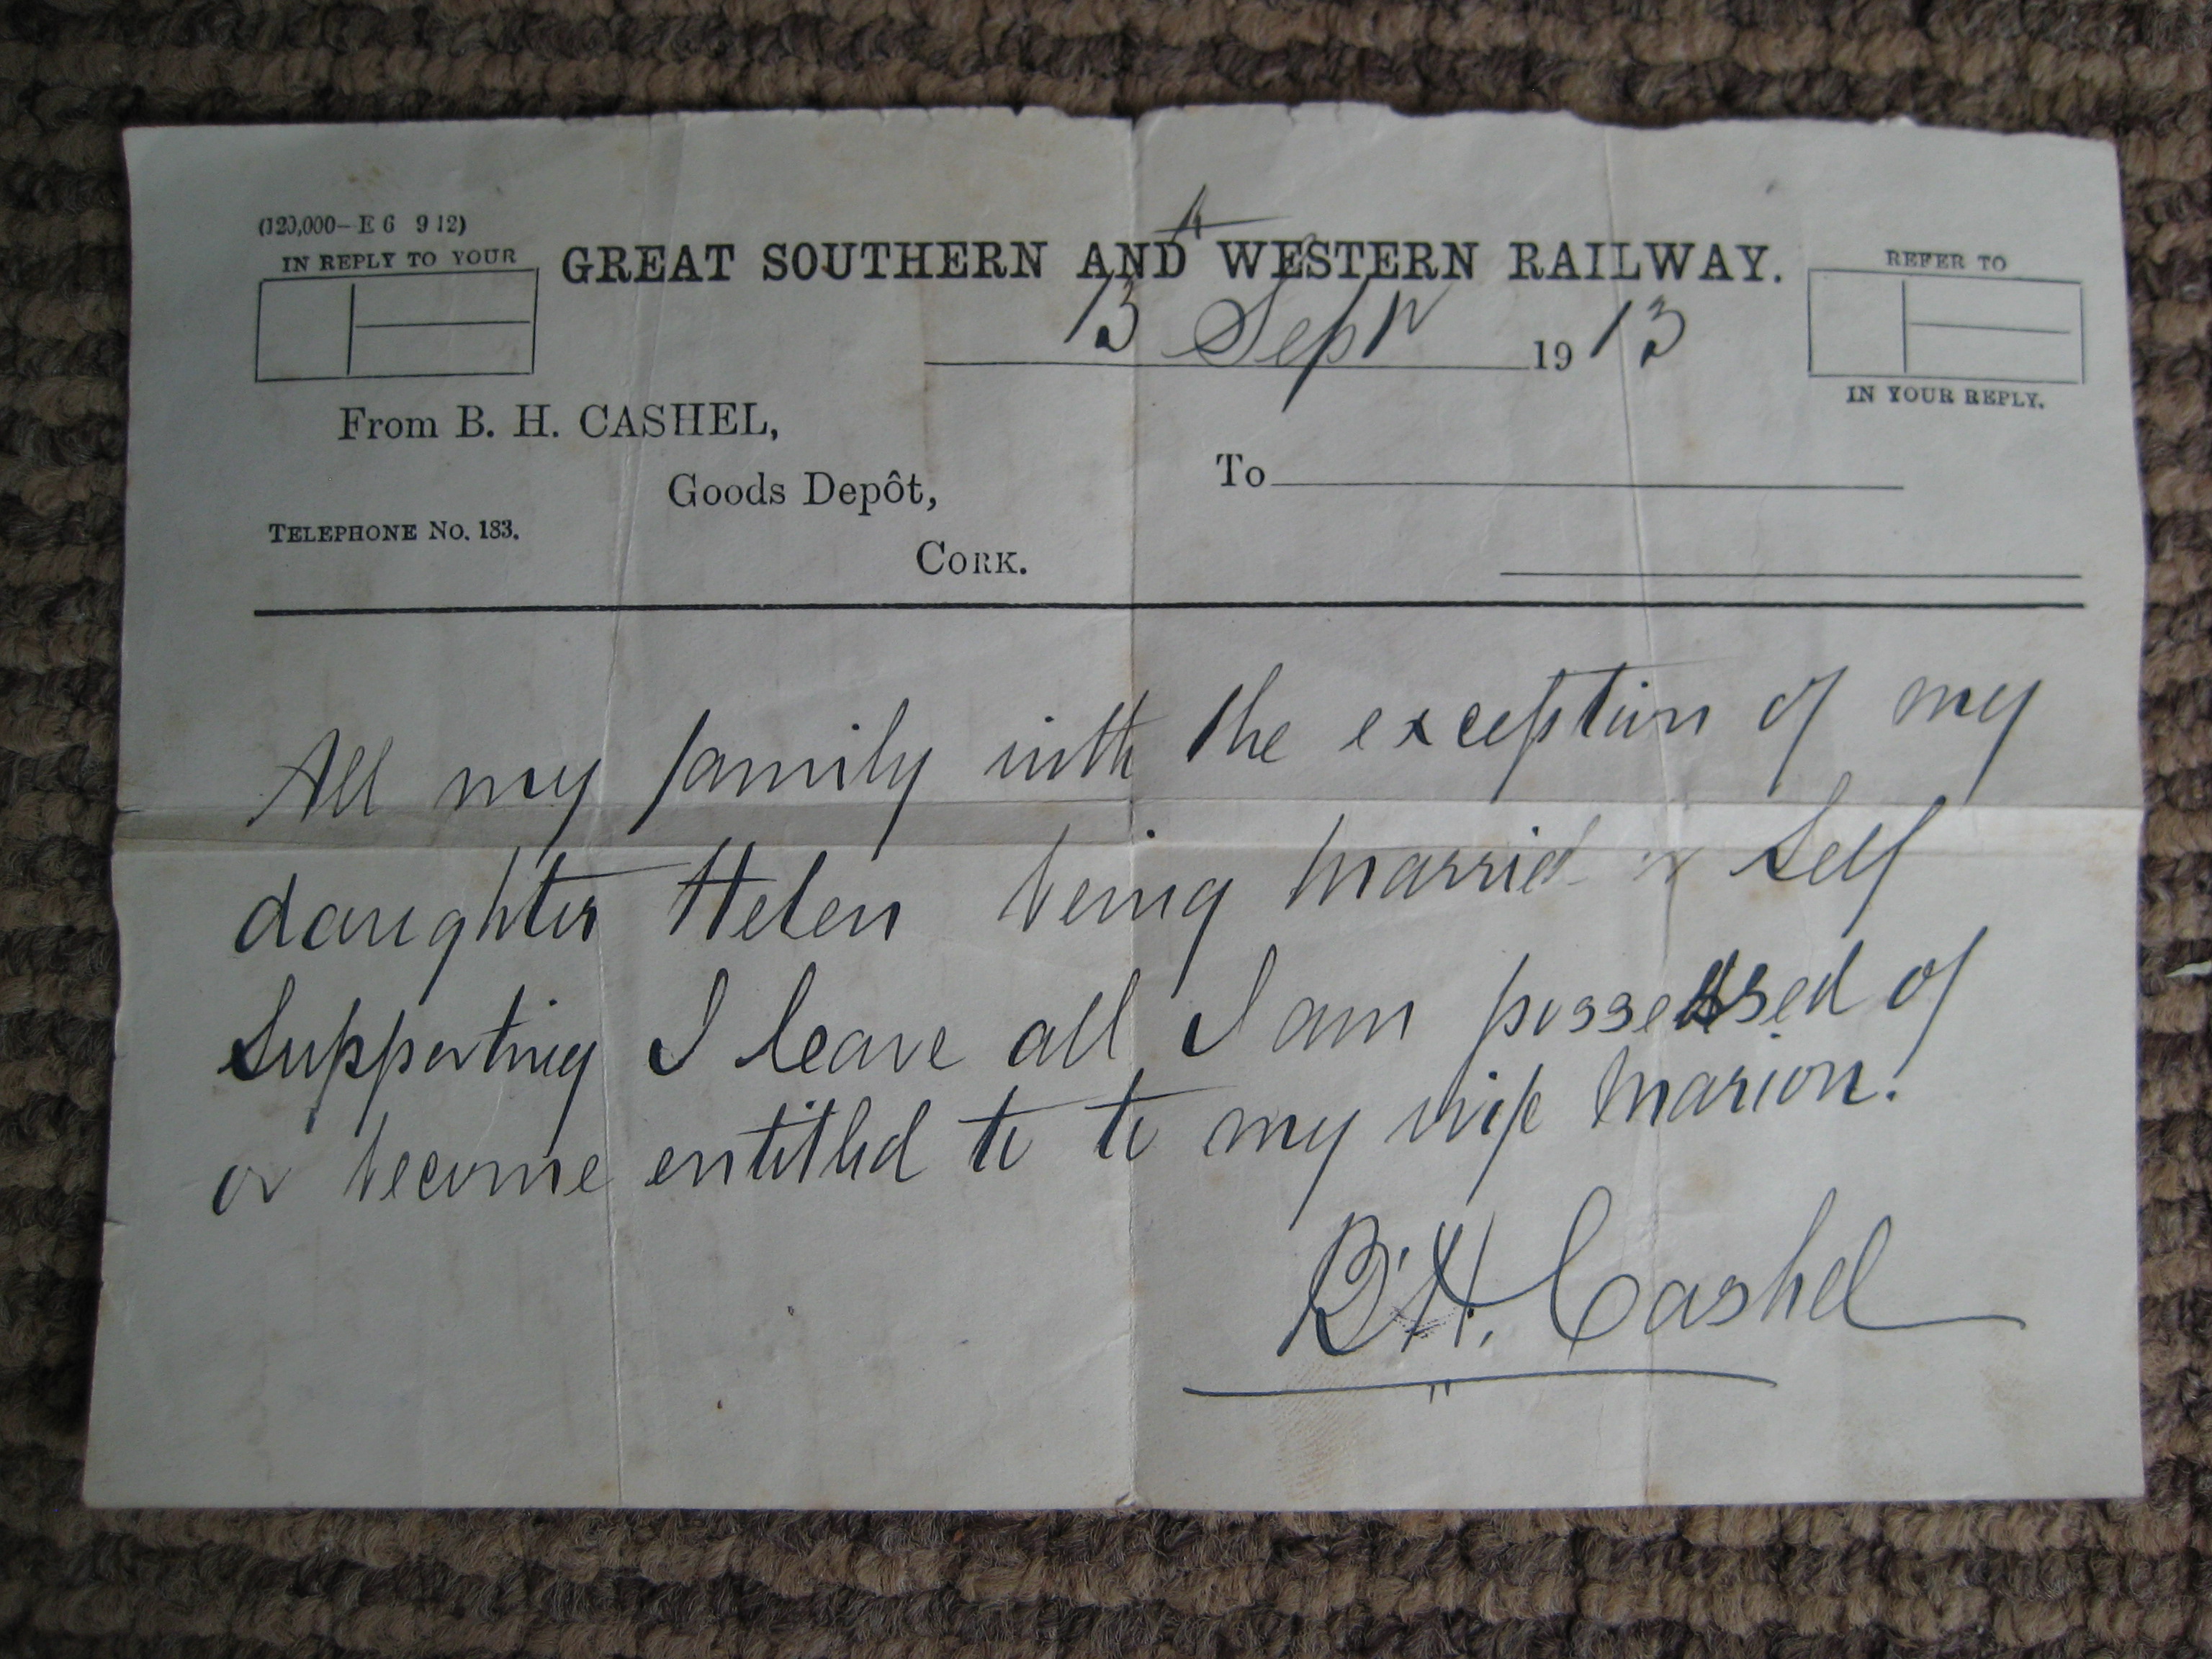 (120,000– E 6 9 12)
IN REPLY TO YOUR
GREAT SOUTHERN AND WESTERN RAILWAY.
REFER TO
13 Sepr 1913
IN YOUR REPLY.
From B. H. CASHEL,
Goods Depôt,
To
TELEPHONE No. 183.
CORK.
All my family with the exception of my
daughter Helen being married & Self
Supporting I leave all I am possessed of
or become entitled to to my wife Marion.
B.H. Cashel